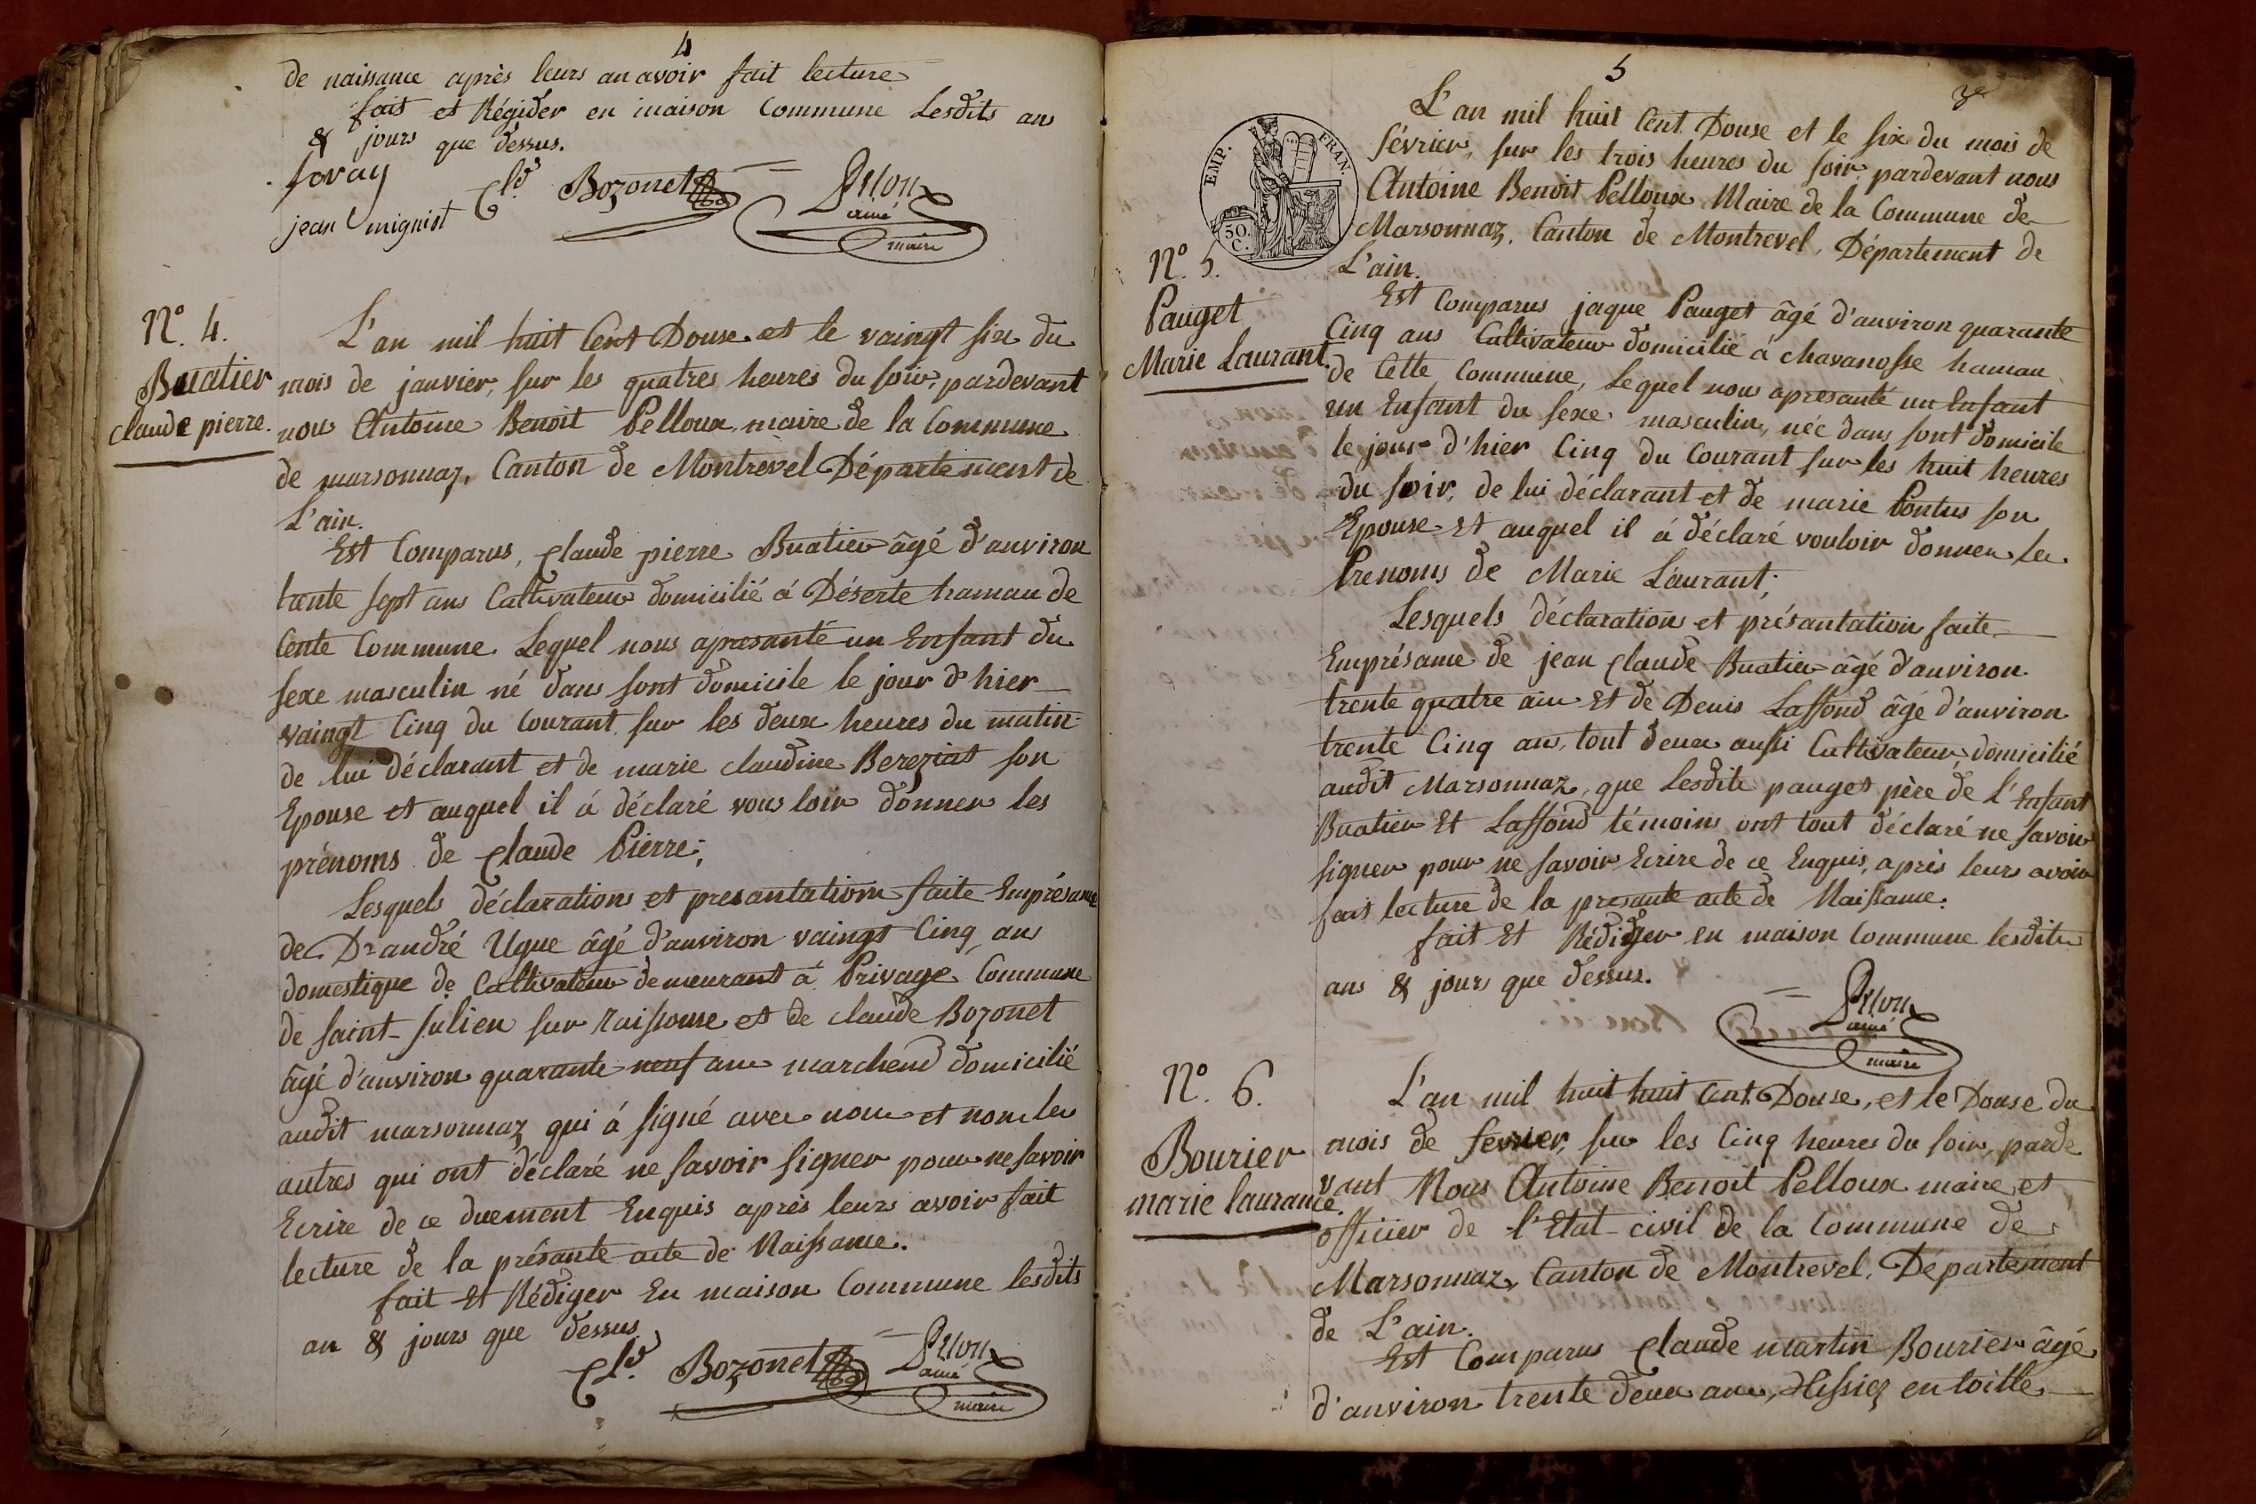 4
de naissance après leurs an avoir fait lecture
fait et Régider en maison Commune Lesdits ans
& jours que dessus.
foray
jean mignist
Cld Bozonet
ainé
maire
N° 4.
Buatier
claude pierre.
L'an mil huit Cent Douse et le vaingt six du
mois de janvier, sur les quatres heures du soir, pardevant
nous Antoine Benoit Pelloux maire de la Commune
de marsonnaz, Canton de Montrevel Département de
L'ain.
Est Comparus, Claude pierre Buatier âgé d'anviron
trente sept ans Cultivateur domicilié á Déserte hamau de
Cente Commune Lequel nous apresanté un Enfant du
sexe masculin né dans sont domicile le jour d'hier
vaingt Cinq du Courant sur les deux heures du matin
de lui déclarant et de marie claudine Bereziat son
Epouse et auquel il á déclaré vous loir donner les
prénoms de Claude Pierre;
Lesquels déclarations et presantation faite Emprésance
de Dr andré Ugue âgé d'anviron vaingt Cinq ans
domestique de Cultivateur demeurant á Privage Commune
de saint-julien sur raissouse et de claude Bozonet
âgé d'anviron quarante neuf ans marchend domicilié
audit marsonnaz qui á signé avec nous et non les
autres qui ont déclaré ne savoir signer pour ne savoir
Ecrire de ce duement Enquis après leurs avoir fait
lecture de la présante acte de Naissance.
fait Et Rédiger En maison Commune lesdits
an & jours que dessus
Cld. Bozonet
ainé
maire
5
N° 5.
Pauget
Marie Laurant.
EMP. FRAN.
50.
C.
L'an mil huit Cent Douse et le six du mois de
février, sur les trois heures du soir pardevant nous
Antoine Benoit Pelloux Maire de la Commune de
Marsonnaz, Canton de Montrevel, Département de
L'ain.
Est Comparus jaque Pauget âgé d'anviron quarante
Cinq ans Cultivateur domicilié á chavanosse hamau
de Cette Commune, Lequel nous apresanté un Enfant
un Enfant du sexe masculin, née dans sont domicile
le jour d'hier Cinq du Courant sur les huit heures
du soir, de lui déclarant et de marie Pontus son
Epouse Et auquel il á déclaré vouloir donner les
Prenoms de Marie Laurant;
Lesquels déclarations et présantation faite
Emprésance de jean Claude Buatier âgé d'anviron
trente quatre ans Et de Denis Laffond âgé d'anviron
trente Cinq ans, tout deux aussi Cultivateur domicilié
audit Marsonnaz, que Lesdits pauget père de L'Enfant
Buatier Et Laffond témoins ont tout déclaré ne savoir
signer pour ne savoir Ecrire de ce Enquis, après leurs avoir
fait lecture de la presante acte de Naissance.
fait Et Rédiger en maison Commune lesdits
ans & jours que dessus.
ainé
maire
N° 6.
Bourier
marie laurance.
L'an mil huit huit Cent Douse, et le Douse du
mois de fevrier, sur les Cinq heures du soir, parde
vant Nous Antoine Benoit Pelloux maire et
officier de l'Etat civil de la Commune de
Marsonnaz, Canton de Montrevel, Département
de L'ain.
Est Comparus Claude martin Bourier âgé
d'anviron trente deux ans, tissier en toille